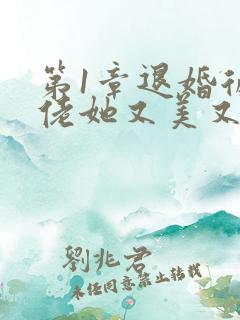 第1章退婚
佬她又美又
劉兆君
未经同意禁止转载